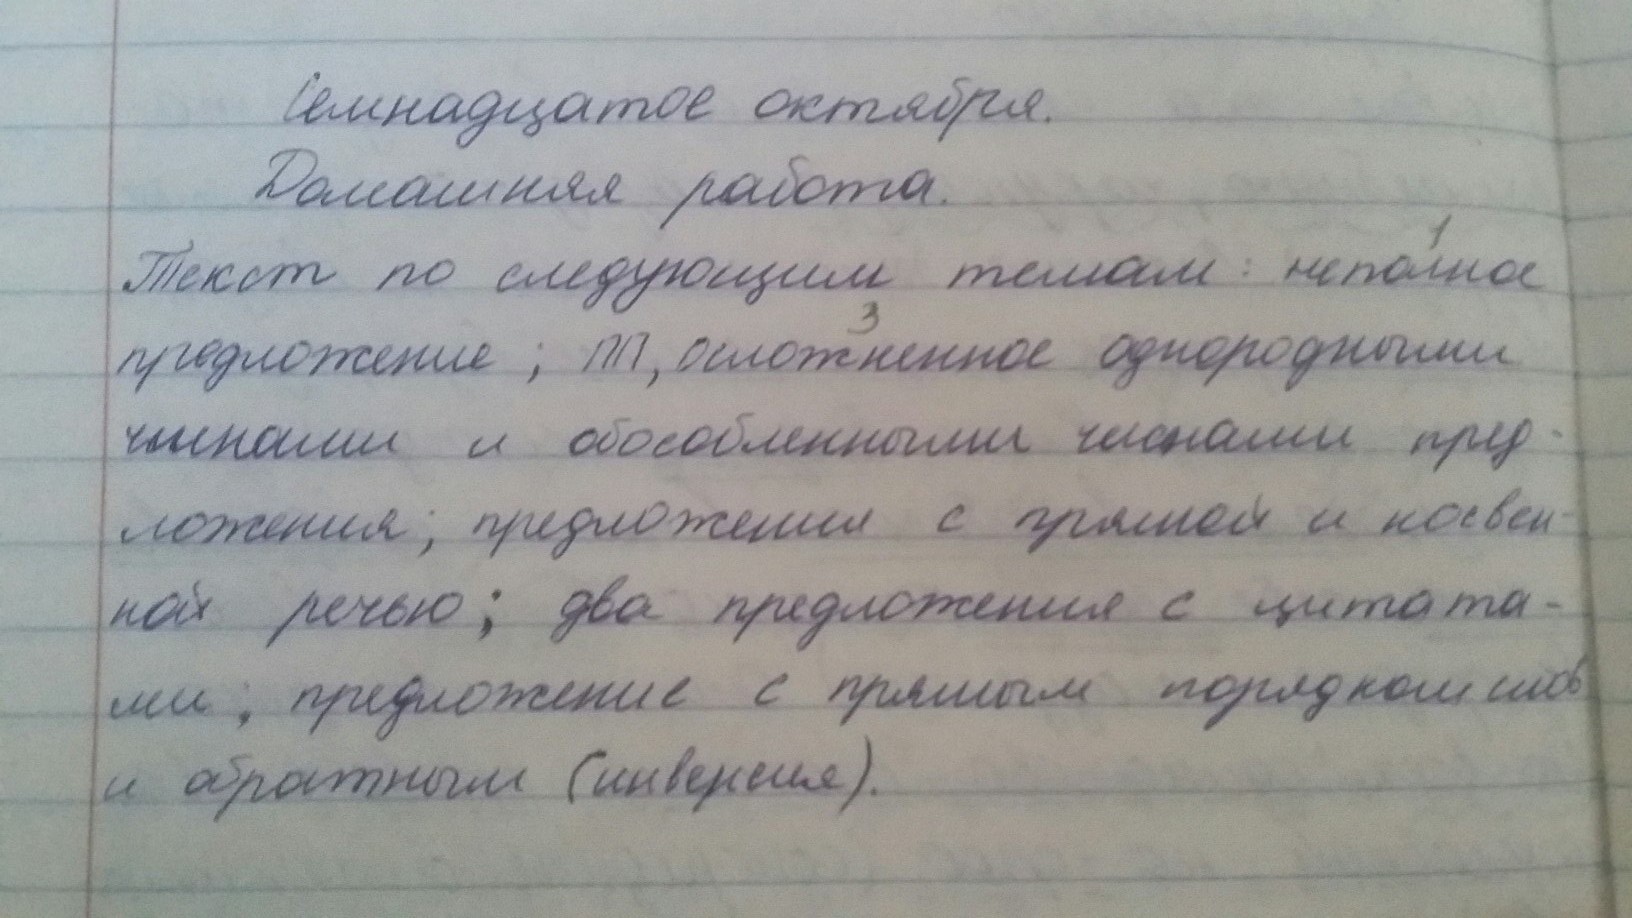 Семнадцатое октября.
Домашняя работа.
Текст по следующим темам: неполное
1
предложение; ПП, осложненное однородными
3
членами и обособленными членами пред-
ложения; предложения с прямой и косвен-
ной речью; два предложения с цитата-
ми; предложение с прямым порядком слов
и обратным (инверсия).